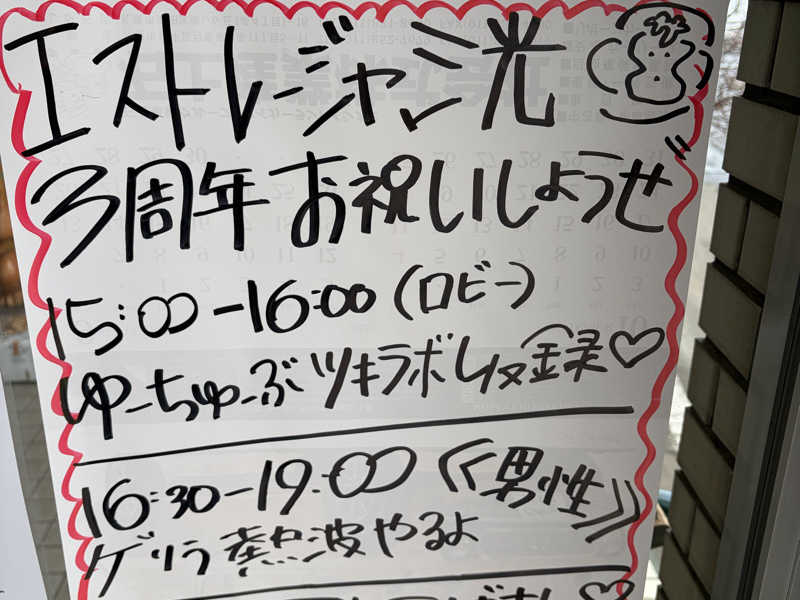 エストレージャシミ光
3周年お祝いしようぜ
15:00-16:00(ロビー)
ゆーちゅーぶツキラボ収録♡
16:30-19:00《男性》
ゲリラ熱波やるよ